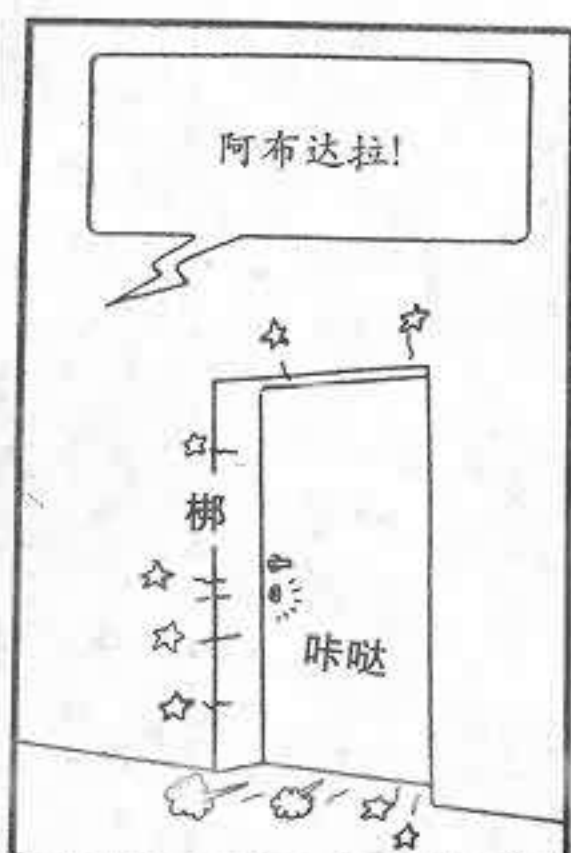 阿布达拉!
梆
咔哒